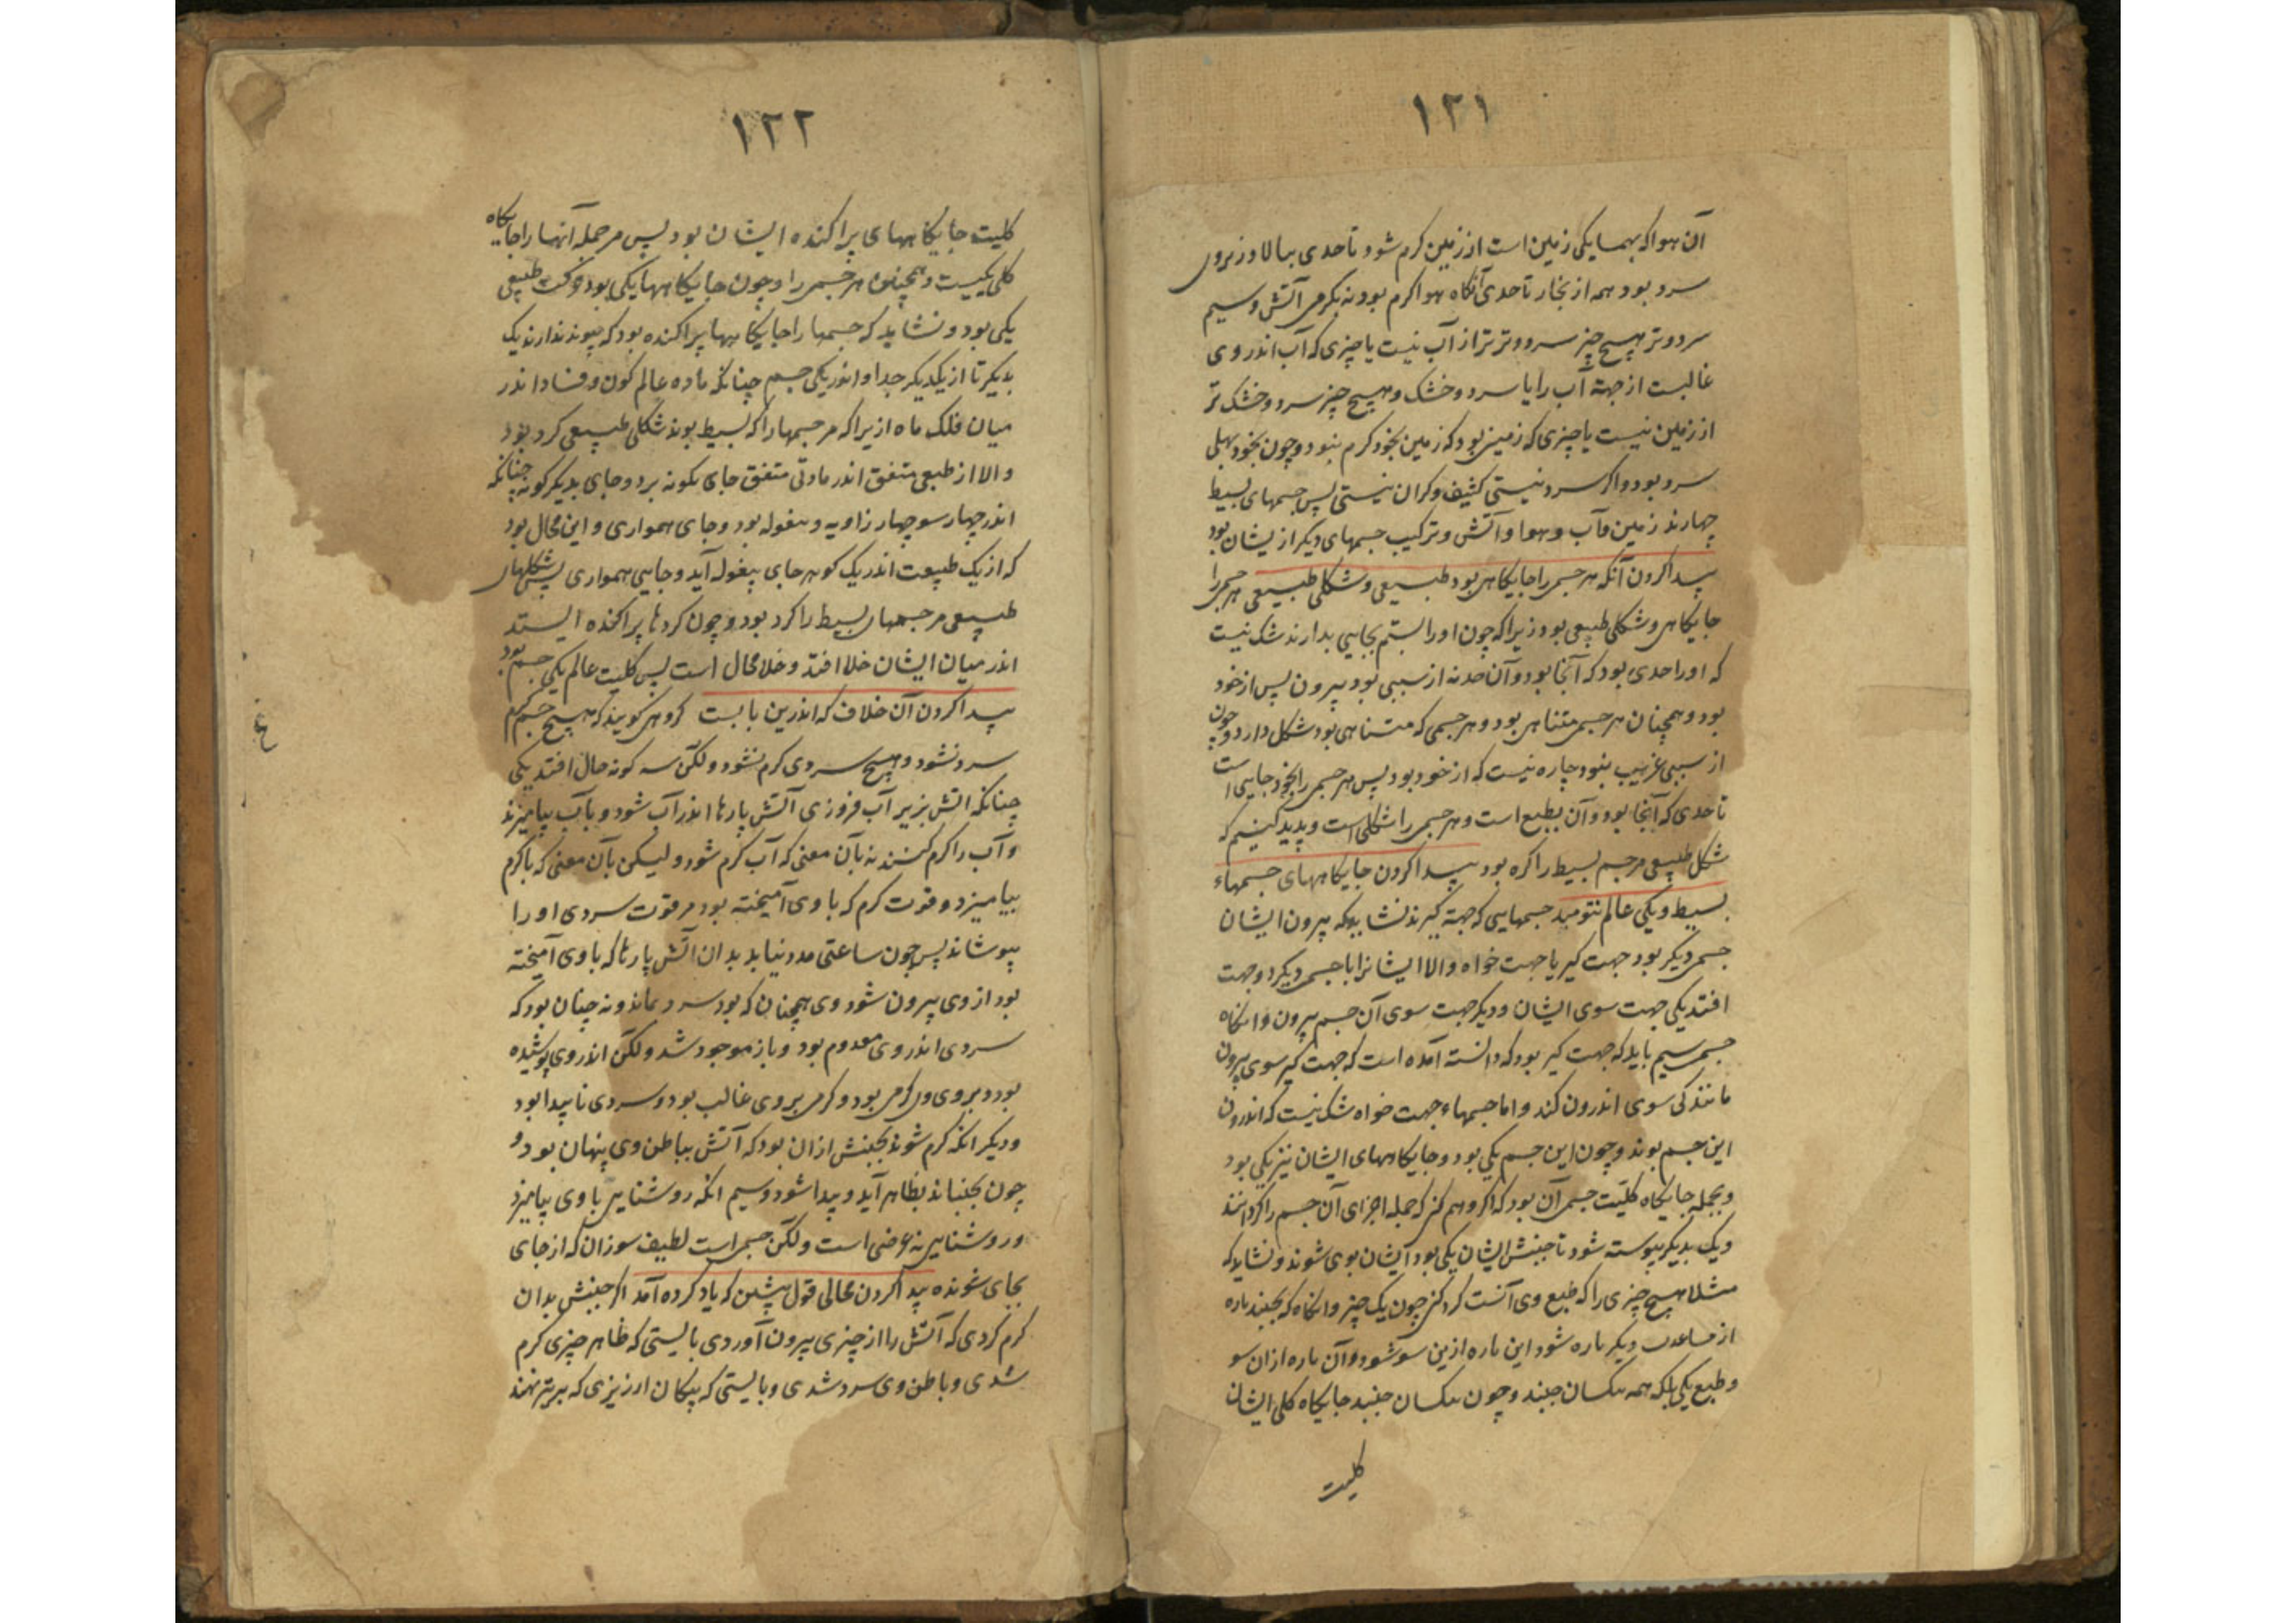 ۱۲۱
آن هوا که بهمسایکی زمین است از زمین کرم شود تا حدی ببالا و زبروی
سرد بود همه از بخار تا حدی آنکاه هوا کرم بود نه بکرمی آتش و سیم
سرد و تر هیچ چیز سرد و تر تر از آب نیست یا چیزی که آب اندر وی
غالبست از جهة آب را یا سرد و خشک و هیچ چیز سرد و خشک تر
از زمین نیست یا چیزی که زمینی بود که زمین بخود کرم بنود و چون بخود بهلی
سرد بود و اکر سرد نیستی کثیف و کران نیستی پس جسمهای بسیط
چهارند زمین و آب و هوا و آتش و ترکیب جسمهای دیکر ازیشان بود
پیدا کردن آنکه هر جسمی را جایکاهی بود طبیعی و شکلی طبیعی هر جسمی را
جایکاهی و شکلی طبیعی بود زیرا که چون او را بستم بجایی بدارند شک نیست
که او را حدی بود که آنجا بود و آن حد نه از سببی بود بیرون پس از خود
بود و همچنان هر جسمی متناهی بود و هر جسمی که متناهی بود شکل دارد و چون
از سببی غریب بنود چاره نیست که از خود بود پس هر جسمی را بخود جایی است
تا حدی که آنجا بود و آن بطبع است و هر جسمی را شکلی است و پدید کنیم که
شکل طبیعی مر جسم بسیط را کره بود پیدا کردن جایکاههای جسمهاء
بسیط و یکی عالم جسمهایی که جهة کیرند نشاید که بیرون ایشان
جسمی دیکر بود جهت کیر یا جهت خواه و الا ایشانرا با جسمی دیکر دو جهت
افتد یکی جهت سوی ایشان و دیکر جهت سوی آن جسم بیرون و آنکاه
جسمی سیم باید که جهت کیر بود که دانسته آمده است که جهت کیر سوی بیرون
مانند کی سوی اندرون کند و اما جسمهاء جهت خواه شک نیست که اندرون
این جسم بوند و چون این جسم یکی بود و جایکاههای ایشان نیز یکی بود
و بجمله جایکاه کلیّت جسمی آن بود که اکر وهم کنی که جمله اجزای آن جسم را کرد آنند
و یک بدیکر پیوسته شود تا جنبش ایشان یکی بود ایشان بوی شوند و نشاید که
مثلا هیچ چیزی را که طبع وی آنست کرد کنی چون یک چیز و آنکاه که بجنبد پاره
از دیکر پاره شود این پاره ازین سو شود و آن پاره از ان سو
و طبع یکی بلکه همه یکسان جنبند و چون یکسان جنبید جایکاه کلی ایشان
کلیت
۱۲۲
کلیت جایکاههای پراکنده ایشان بود پس مر جمله آنها را جایکاه
کلی یکیست و همچنین هر جسمی را و چون جایکاهها یکی بود حرکت طبیعی
یکی بود و نشاید که جسمها را جایکاهها پراکنده بود که پیوند ندارند یک
بدیکر تا از یکدیکر جدا و اندر یکی جسم چنانکه ماده عالم کون و فساد اندر
میان فلک ماه ازیرا که مر جسمها را که بسیط بوند شکلی طبیعی کرد بود
و الا از طبعی متفق اندر مادتی متفق جای نکونه برد و جای بدیکر کونه چنانکه
اندر چهار سو چهار زاویه و بیغوله بود و جای همواری و این محال بود
که از یک طبیعت اندر یک کوهر جای بیغوله آید و جایی همواری پس شکلهای
طبیعی مر جسمهای بسیط را کرد بود و چون کردها پراکنده ایستد
اندر میان ایشان خلا افتد و خلا محال است پس کلیت عالم یکی جسم بود
پیدا کردن آن خلاف که اندرین بابست کروهی کویند که هیچ جسم کرم
سرد نشود و هیچ سردی کرم نشود ولکن سه کونه حال افتد یکی
چنانکه اتش بزیر آب فروزی آتش پارها اندر آب شود و بآب بیامیزند
و آب را کرم کنند نه بآن معنی که آب کرم شود و لیکن بآن معنی که با کرم
بیامیزد و قوت کرم که با وی آمیخته بود مر قوت سردی او را
بپوشاند پس چون ساعتی مدد نیابد بدان اتش پارها که با وی آمیخته
بود از وی بیرون شود وی همچنان که بود سرد بماند و نه چنان بود که
سردی اندر وی معدوم بود و باز موجود شد ولکن اندر وی پوشیده
بود و بر وی کرمی بود و کرمی بر وی غالب بود و سردی ناپیدا بود
و دیکر انکه کرم شوند بجنبش از ان بود که آتش بباطن وی پنهان بود و
چون بجنباند بظاهر آید و پیدا شود و سیم انکه روشنایی با وی بیامیزد
و روشنایی نه عرضی است ولکن جسمی است لطیف سوزان که از جای
بجای شونده پیدا کردن محالی قول پیشین که یاد کرده آمد اکر جنبش بدان
کرم کردی که آتش را از چیزی بیرون آوردی بایستی که ظاهر چیزی کرم
شدی و باطن وی سرد شدی و بایستی که پیکان ارزیزی که بر تیر نهند